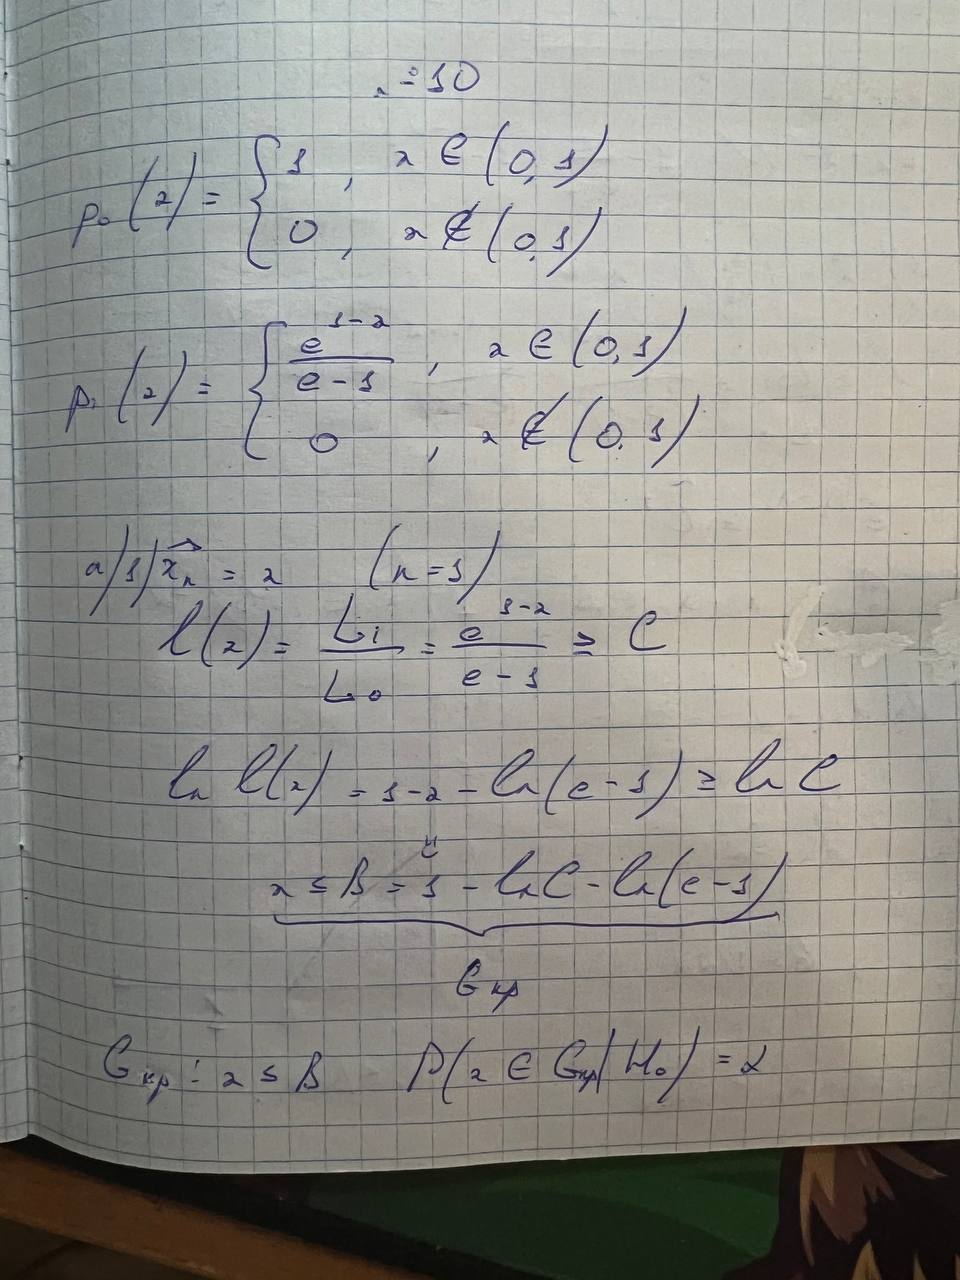 № 10
p₀(x) = { 1 , x ∈ (0,1)
0 , x ∉ (0,1)
p₁(x) = { e^{1-x} / (e-1) , x ∈ (0,1)
0 , x ∉ (0,1)
а) 1) x⃗ₙ = x (n=1)
l(x) = L₁ / L₀ = e^{1-x} / (e-1) ≥ C
ln l(x) = 1-x - ln(e-1) ≥ ln C
x ≤ B = 1 - ln C - ln(e-1)
Gкр
Gкр : x ≤ B P(x ∈ Gкр | H₀) = α